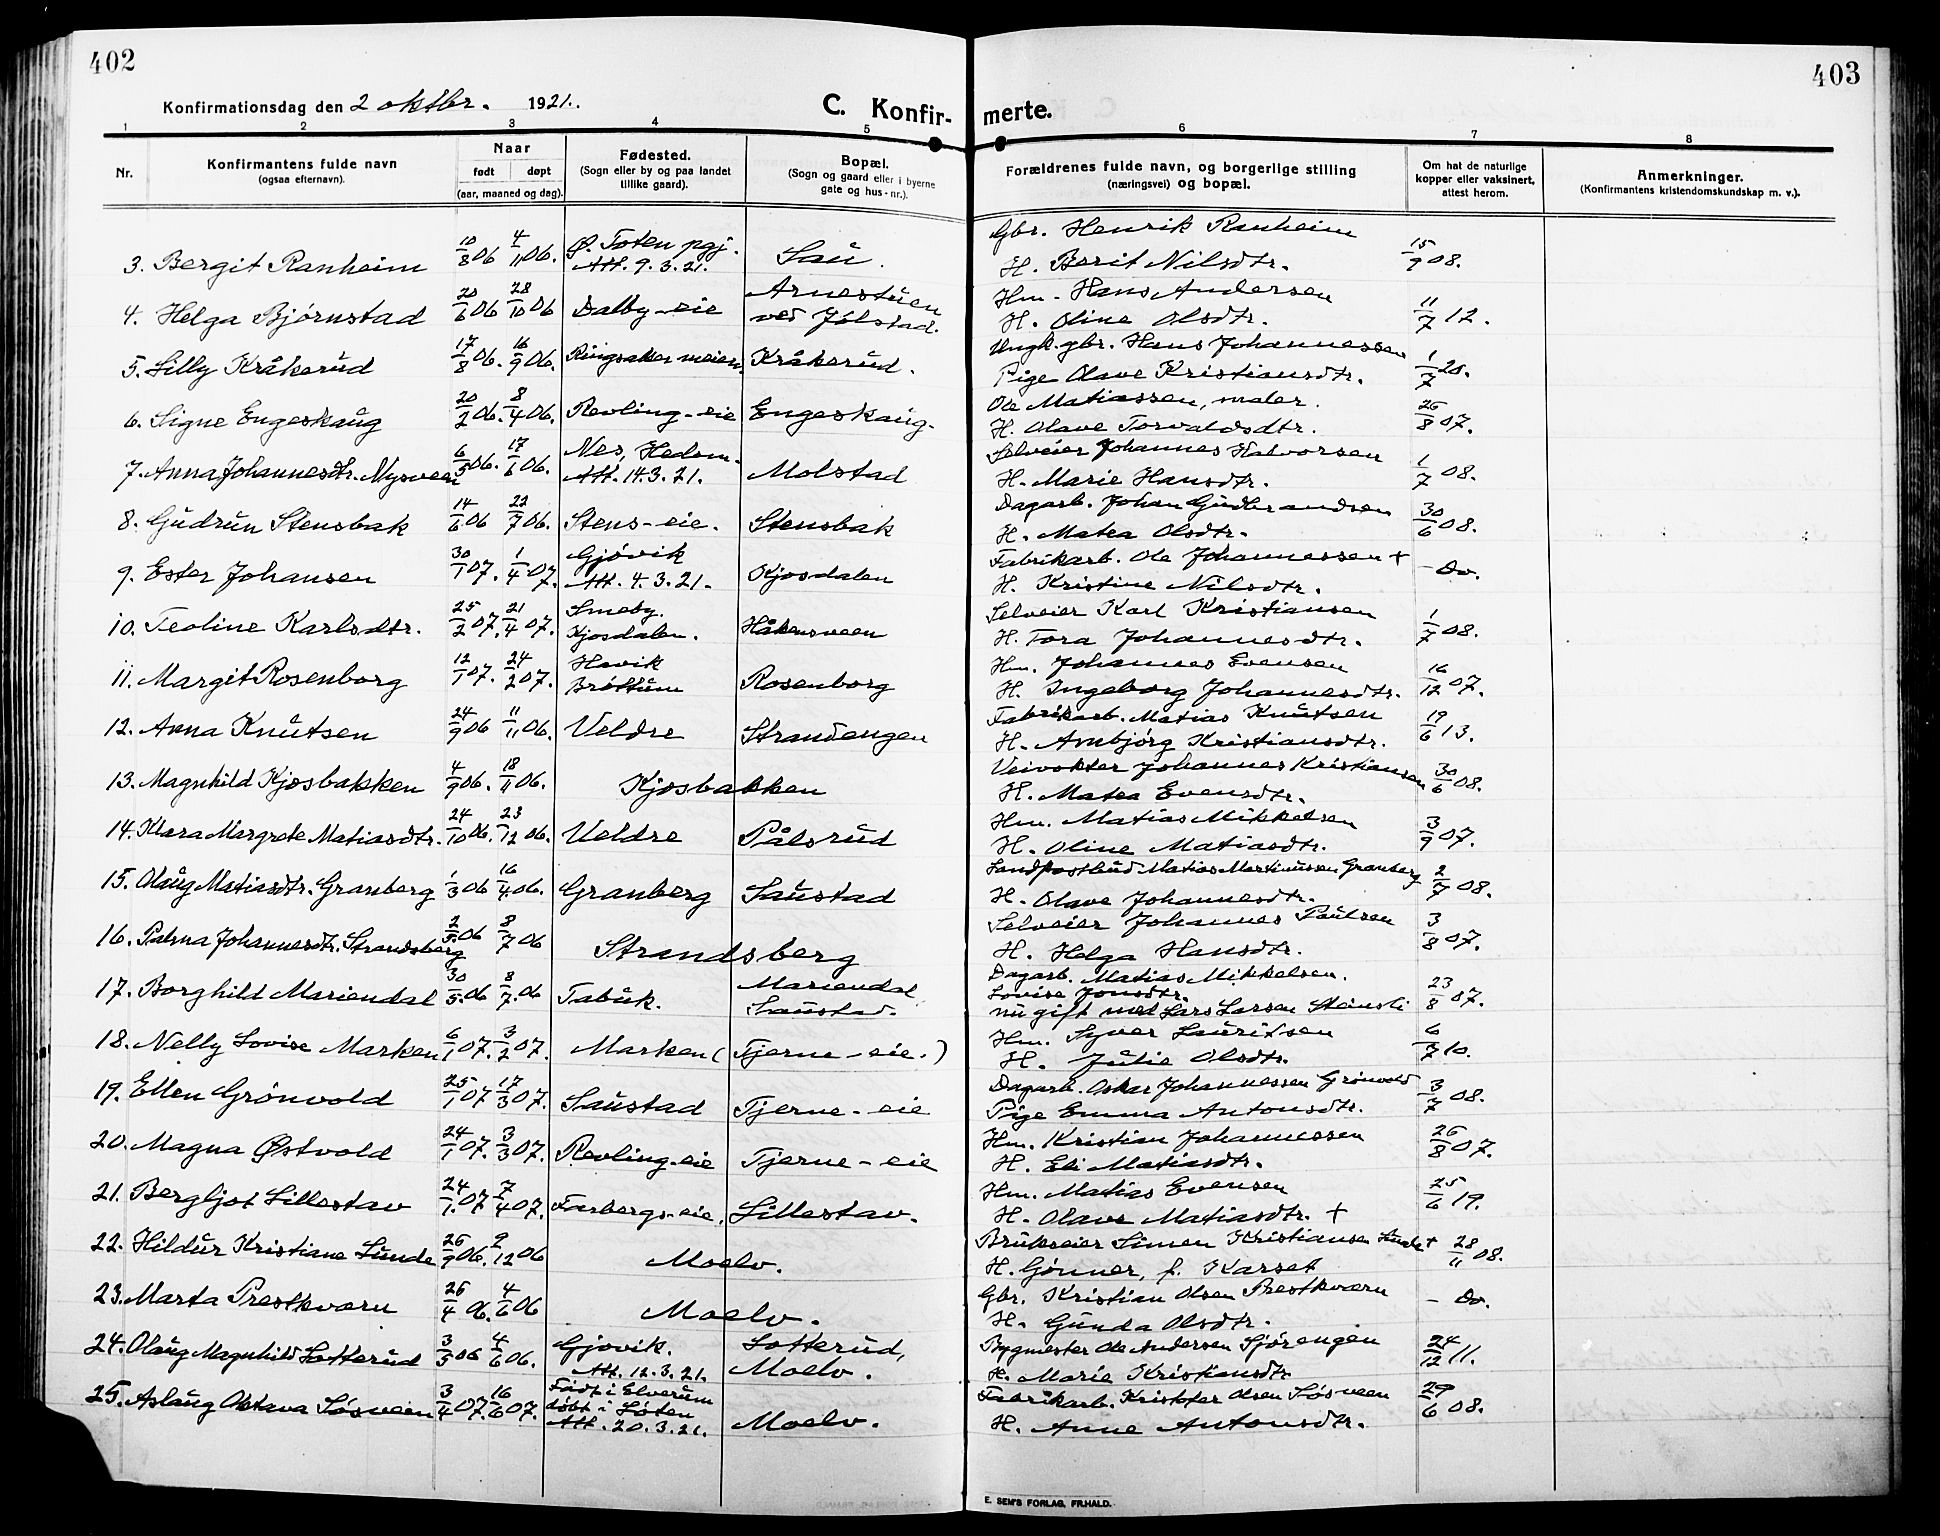 402
Konfirmationsdag den 2 oktbr. 1921.
C. Konfir-
1 2 3 4 5
Nr. Konfirmantens fulde navn (ogsaa efternavn). Naar født døpt (aar, maaned og dag). Fødested. (Sogn eller by og paa landet tillike gaard). Bopæl. (Sogn og gaard eller i byerne gate og hus-nr.).
3. Bergit Ranheim 10/8 06 4/11 06. Ø. Toten pgj. Att. 9.3.21. Sau.
4. Helga Bjørnstad 20/6 06 28/10 06 Dalby-eie Arnestuen ved Jølstad.
5. Lilly Kråkerud 17/8 06. 16/9 06. Ringsaker meieri Kråkerud.
6. Signe Engeskaug 20/2 06. 8/4 06. Revling-eie Engeskaug.
7. Anna Johannesdtr. Mysveen 6/5 06. 17/6 06. Nes, Hedem. Att. 14.3.21. Molstad
8. Gudrun Stensbak 14/6 06 22/7 06. Stens-eie. Stensbak
9. Ester Johansen 30/1 07. 1/4 07. Gjövik Att. 4.3.21. Kjosdalen
10. Teoline Karlsdtr. 25/2 07. 21/4 07. Smeby. Kjosdalen. Håkensveen
11. Margit Rosenborg 12/1 07. 24/2 07. Hovik Brøttum Rosenborg
12. Anna Knutsen 24/9 06 11/11 06. Veldre Strandengen
13. Magnhild Kjosbakken 4/9 06. 18/11 06. Kjosbakken
14. Klara Margrete Matiasdtr. 24/10 06. 23/12 06. Veldre Pålsrud
15. Olaug Matiasdtr. Granberg 1/3 06 16/4 06. Granberg Saustad
16. Palma Johannesdtr. Strandsberg 2/5 06 8/7 06 Strandsberg
17. Borghild Mariendal 30/5 06 8/7 06 Tabuk. Mariendal Saustad.
18. Nelly Lovise Marken 6/1 07. 3/2 07. Marken (Tjerne-eie.)
19. Ellen Grönvold 25/1 07 17/3 07. Saustad Tjerne-eie
20. Magna Østvold 24/1 07. 3/3 07. Revling-eie Tjerne-eie
21. Bergljot Lillestav 24/1 07 7/4 07. Farbergs-eie. Lillestav.
22. Hildur Kristiane Lunde 26/9 06. 2/12 06 Moelv.
23. Marta Prestkværn 26/4 06. 4/6 06 Moelv.
24. Olaug Magnhild Lotterud 3/5 06 4/6 06. Gjovik. Att. 12.3.21. Lotterud, Moelv.
25. Aslaug Oktava Løsveen 3/4 07. 16/6 07. Född i Elverum döbt i Löten Att. 20.3.21. Moelv.
403
merte.
6 7 8
Forældrenes fulde navn, og borgerlige stilling (næringsvei) og bopæl. Om hat de naturlige kopper eller vaksinert, attest herom. Anmerkninger. (Konfirmantens kristendomskundskap m. v.).
Gbr. Henrik Ranheim
H. Berit Nilsdtr. 15/9 08.
Hm. Hans Andersen
H. Oline Olsdtr. 11/7 12.
Ungk. gbr. Hans Johannessen
Pige Olave Kristiansdtr. 1/7 20.
Ole Matiassen, maler.
H. Olave Torvaldsdtr. 26/8 07.
Selveier Johannes Halvorsen
H. Marie Hansdtr. 1/7 08.
Dagarb. Johan Gudbrandsen
H. Matea Olsdtr. 30/6 08.
Fabrikarb. Ole Johannessen +
H. Kristine Nilsdtr. - Do.
Selveier Karl Kristiansen
H. Tora Johannesdtr. 1/7 08.
Hm. Johannes Evensen
H. Ingeborg Johannesdtr. 16/12 07.
Fabrikarb. Matias Knutsen
H. Arnbjørg Kristiansdtr. 19/6 13.
Veivokter Johannes Kristiansen
H. Matea Evensdtr. 30/6 08.
Hm. Matias Mikkelsen
H. Oline Matiasdtr. 3/9 07.
Landpostbud Matias Martinussen Granberg
H. Olave Johannesdtr. 2/7 08.
Selveier Johannes Paulsen
H. Helga Hansdtr. 3/8 07.
Dagarb. Matias Mikkelsen.
Lovise Jonsdtr.
nu gift med Lars Larsen Stensli 23/8 07.
Hm. Syver Lauritsen
H. Julie Olsdtr. 6/7 10.
Dagarb. Oskar Johannessen Grönvold
Pige Emma Antonsdtr. 3/7 08.
Hm. Kristian Johannessen
H. Eli Matiasdtr. 26/8 07.
Hm. Matias Evensen
H. Olave Matiasdtr. + 25/6 19.
Brukseier Simen Kristiansen Lunde +
H. Gönner, f. Karset 28/11 08.
Gbr. Kristian Olsen Prestkværn
H. Gunda Olsdtr. - Do.
Bygmester Ole Andersen Sjörengen
H. Marie Kristiansdtr 24/12 11.
Fabrikarb. Kristofer Olsen Løsveen
H. Anne Antonsdtr. 29/6 08.
E. SEM'S FORLAG, FR.HALD.